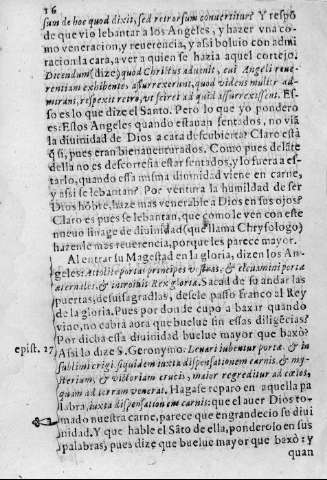 16
sum de hoc quod dixit, sed retrorsum convertitur? Y respõ
de que vio lebantar a los Angeles, y hazer vna co
mo veneracion, y reuerencia, y assi boluio con admi
racion la cara, a ver a quien se hazia aquel cortejo.
Dicendum (dize) quod Christus aduenit, cui Angeli reue-
rentiam exhibentes assurrexerunt, quod videns mulier ad-
mirans, respexit retro, vt sciret ad quid assurrexissent. Es-
so es lo que dize el Santo. Pero lo que yo pondero
es: Estos Angeles quando estauan sentados, no viã
la diuinidad de Dios a cara descubierta? Claro està
q̃ si, pues eran bienauenturados. Como pues delãte
della no es descortesia estar sentados, y lo fuera a es-
tarlo, quando essa misma diuinidad viene en carne,
y assi se lebantan? Por ventura la humildad de ser
Dios hõbre, haze mas venerable a Dios en sus ojos?
Claro es pues se lebantan, que como le ven con este
nueuo linage de diuinidad (que llama Chrysologo)
hazenle mas reuerencia, porque les parece mayor.
Al entrar su Magestad en la gloria, dizen los An-
geles: Attollite portas principes vestras, & eleuamini portæ
æternales, & introibit Rex gloriæ. Sacad de su andar las
puertas, desuisagradlas, desele passo franco al Rey
de la gloria. Pues por donde cupo a baxar quando
vino, no cabrà aora que buelue sin essas diligẽcias?
Por dicha essa diuinidad buelue mayor que baxò?
epist. 27 Assi lo dize S. Geronymo. Leuari iubentur portæ, & in
sublimi erigi. siquidem iuxta dispensationem carnis, & my-
sterium, & victoriam crucis, maior regreditur ad cœlos,
quam ad terram venerat. Hagase reparo en aquella pa
labra, iuxta dispensationem carnis: que el auer Dios to-
mado nuestra carne, parece que engrandecio su diui
nidad. Y que hable el Sãto de ella, ponderolo en sus
palabras, pues dize que buelue mayor que baxò: y
quan